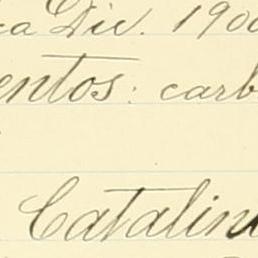 ca Dic. 1900
entos: carb
Catalin